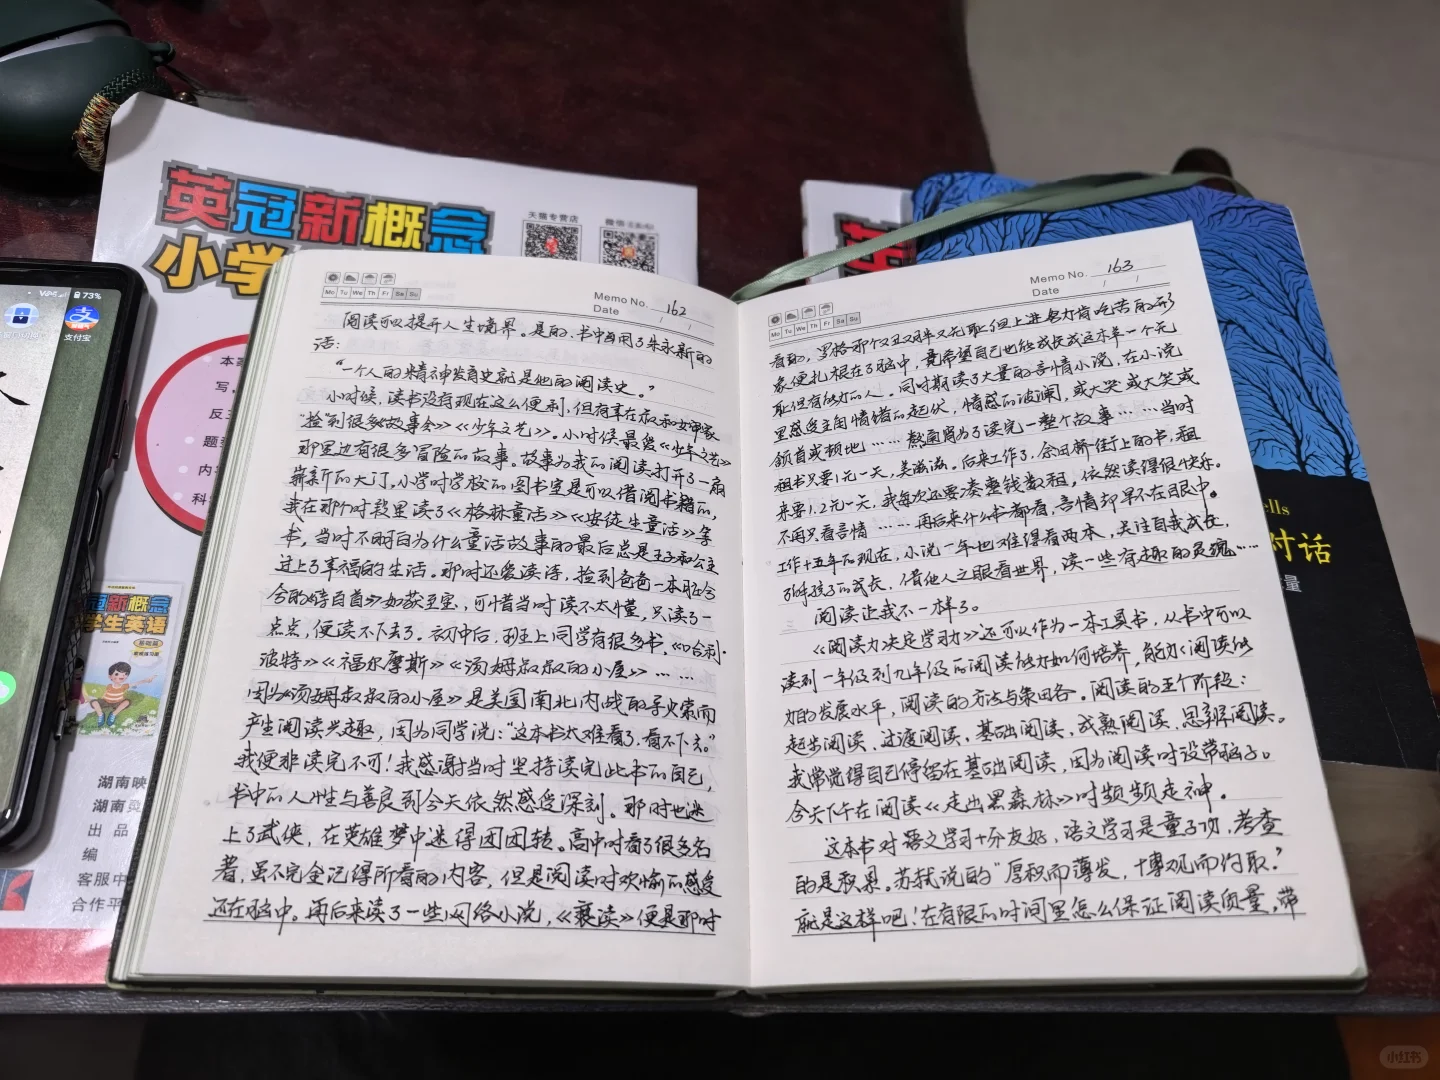 英冠新概念
小学
天猫专营店
73%
支付宝
本
写,
反
题
内
科
冠新概念
学生英语
湖南映
湖南
出 品
编
客服中
合作平
Mo Tu We Th Fr Sa Su
Memo No. 162
Date / /
阅读可以提升人生境界。是的,书中再用了朱永新的
话:
“一个人的精神发育史就是他的阅读史。”
小时候,读书没有现在这么便利,但有幸在叔和女神家
“捡”到很多《故事会》《少年文艺》。小时候最爱《少年文艺》
那里边有很多冒险的故事。故事为我的阅读打开了一扇
崭新的大门,小学时学校的图书室是可以借阅书籍的,
我在那个时段里读了《格林童话》《安徒生童话》等
书,当时不明白为什么童话故事的最后总是王子和公主
过上了幸福的生活。那时还爱读诗,捡到爸爸一本
如获至宝,可惜当时读不太懂,只读了一
点点,便读不下去了。初中后,班上同学有很多书,《哈利·
波特》《福尔摩斯》《汤姆叔叔的小屋》……
因为《汤姆叔叔的小屋》是美国南北内战的导火索而
产生阅读兴趣,因为同学说:“这本书太难看了,看不下去。”
我便非读完不可!我感谢当时坚持读完此书的自己,
书中的人性与善良到今天依然感受深刻。那时也迷
上了武侠,在英雄梦中迷得团团转。高中时看了很多名
著,虽不完全记得所看的内容,但是阅读时欢愉的感受
还在脑中。再后来读了一些网络小说,《亵渎》便是那时
Mo Tu We Th Fr Sa Su
Memo No. 163
Date / /
看的,罗格那个又丑又胖又无耻但上进努力肯吃苦的形
象便扎根在了脑中,竟希望自己也能成长成这本里一个无
耻但有能力的人。同时期读了大量的言情小说,在小说
里感受主角情绪的起伏,情感的波澜,或大哭或大笑或
颔首或顿地……熬通宵为了读完一整个故事……当时
租书只要1元一天,美滋滋。后来工作了,余田桥街上的书,租
来要1.2元一天,我每次还要凑整钱数租,依然读得很快乐。
不再只看言情……再后来什么书都看,言情却早不在眼中。
工作十五年的现在,小说一年也难得看两本,关注自我成长,
了解孩子的成长,借他人之眼看世界,读一些有趣的灵魂……
阅读让我不一样了。
三
《阅读力决定学习力》还可以作为一本工具书,从书中可以
读到一年级到九年级的阅读能力如何培养,能力《阅读能
力》的发展水平,阅读的方法与策略各。阅读的五个阶段:
起步阅读、过渡阅读、基础阅读、成熟阅读、思辨阅读。
我常觉得自己停留在基础阅读,因为阅读时没带脑子。
今天下午在阅读《走出黑森林》时频频走神。
这本书对语文学习十分友好,语文学习是童子功,考查
的是积累。苏轼说的“厚积而薄发,博观而约取。”
就是这样吧!在有限的时间里怎么保证阅读质量,带
ells
对话
量
小红书